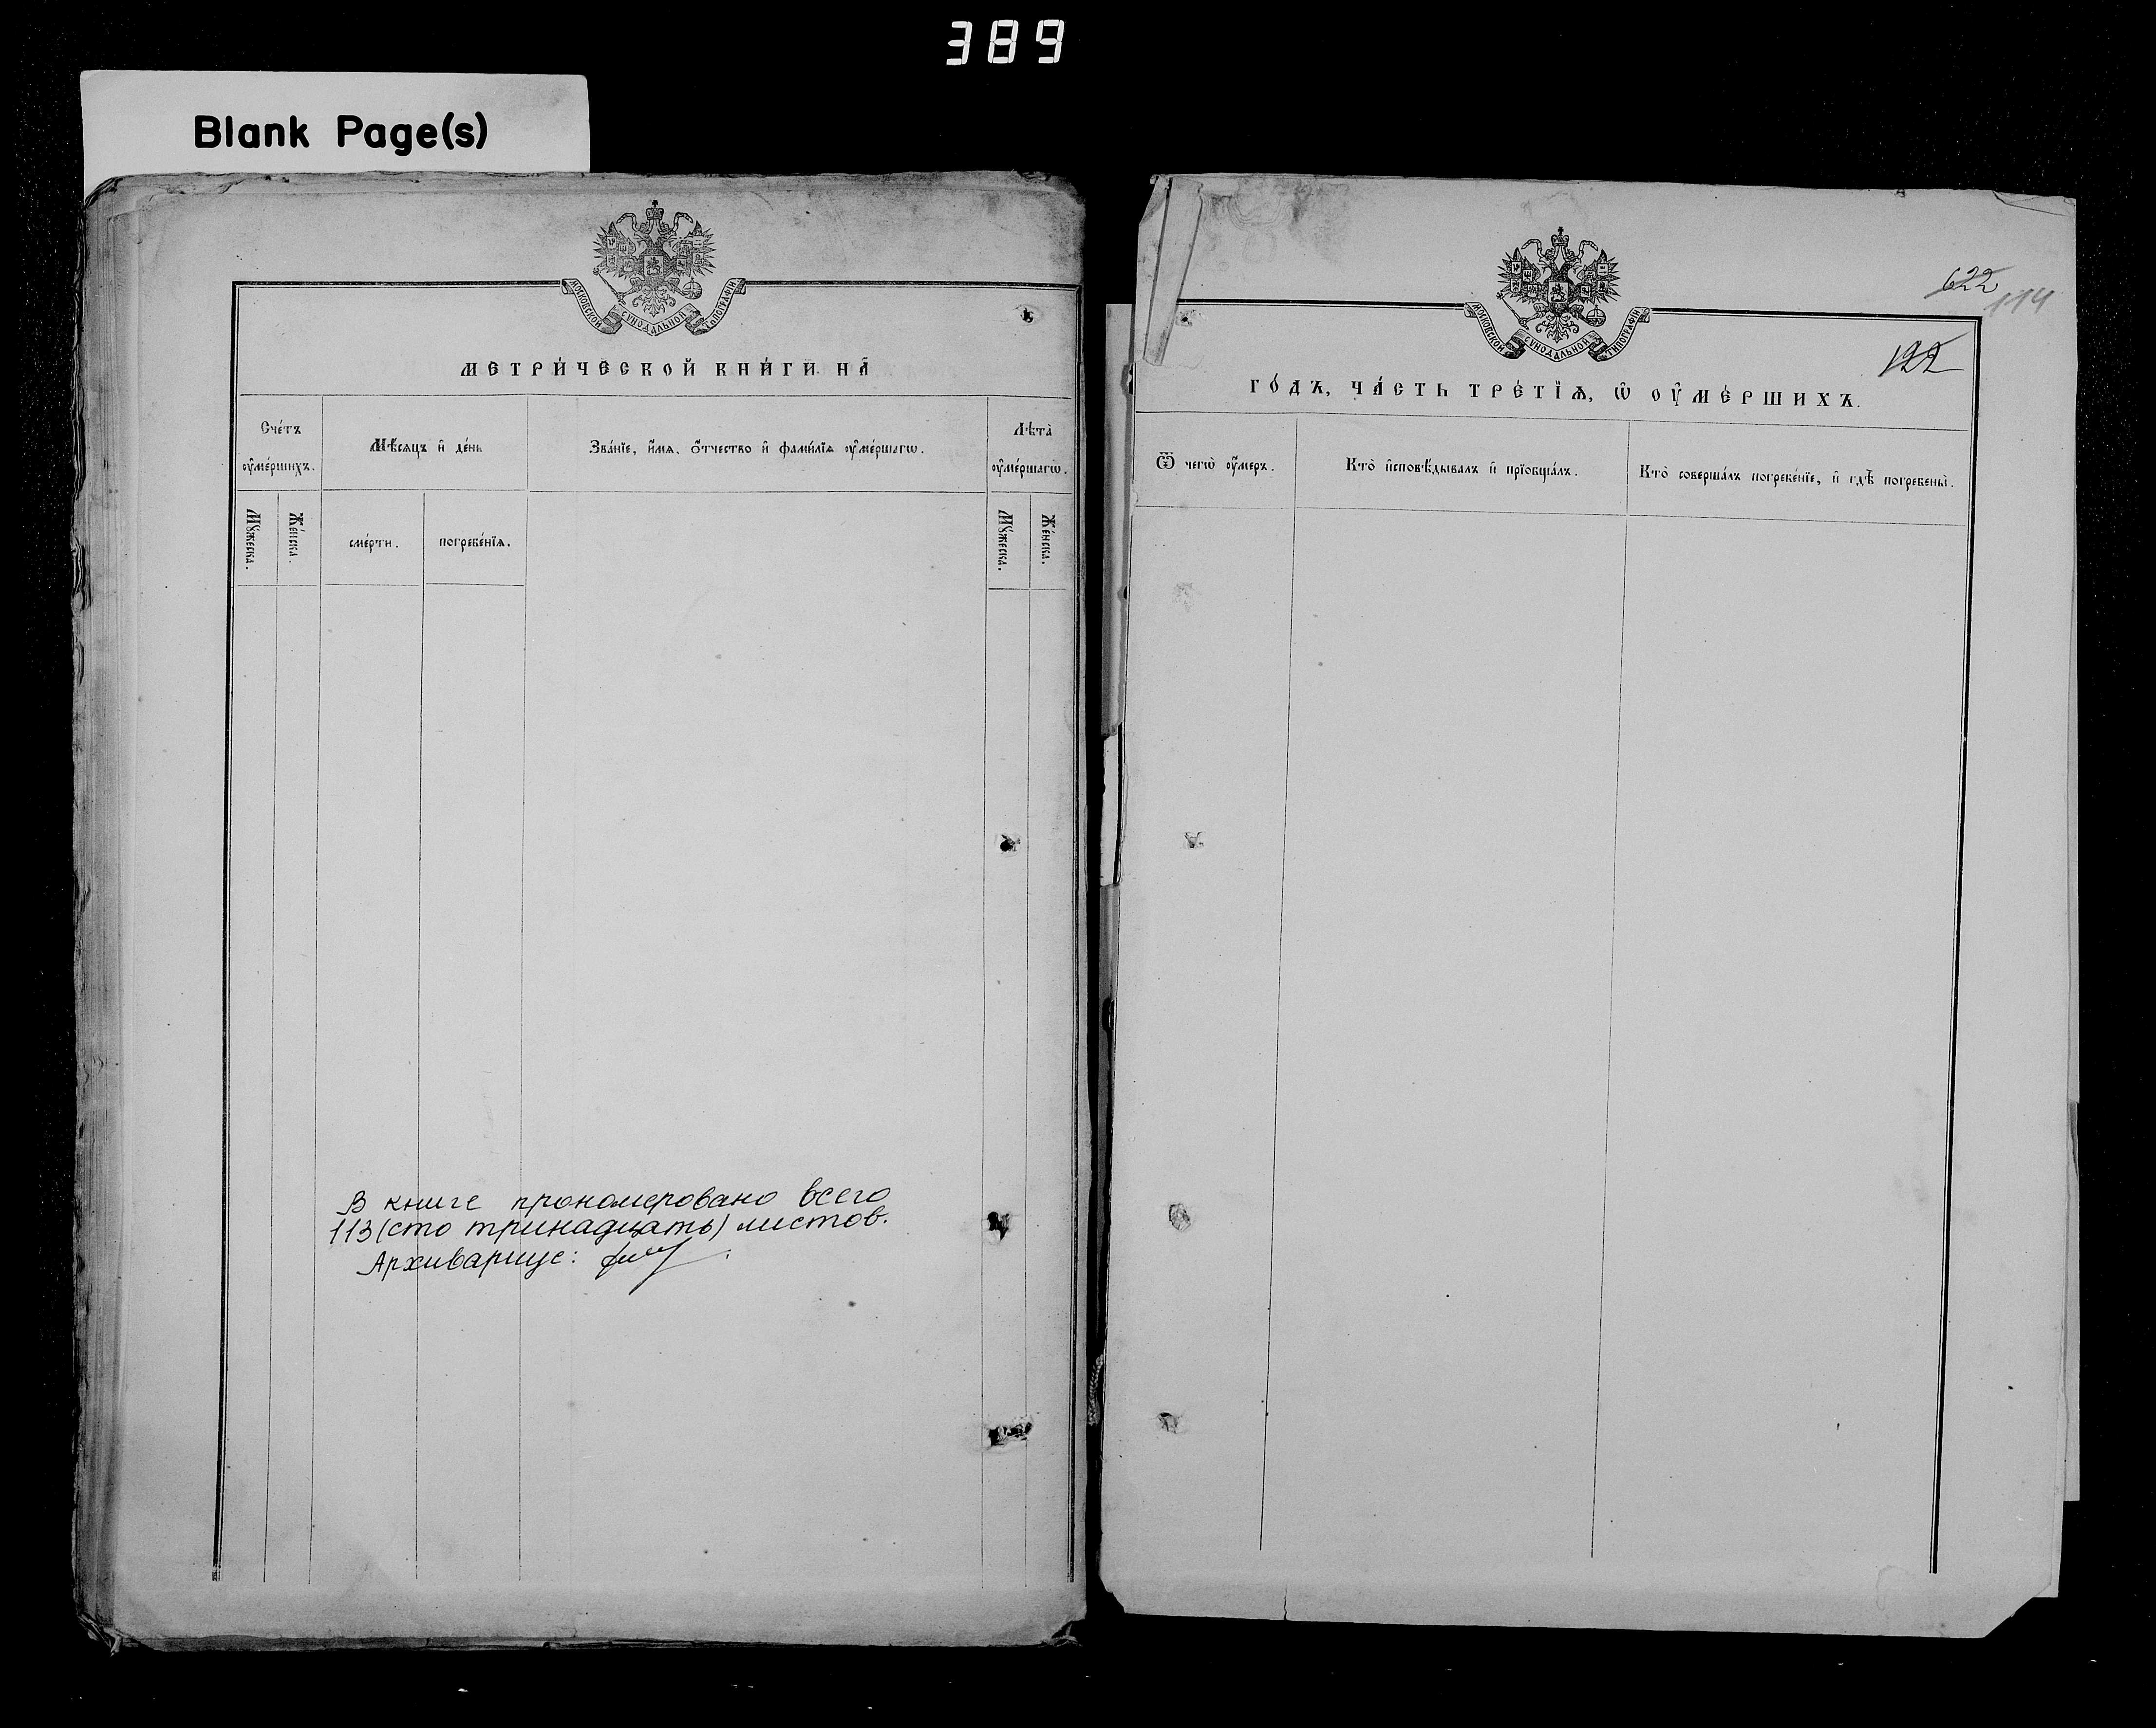 389
Blank Page(s)
МОСКОВСКОЙ СѴНОДАЛЬНОЙ ТИПОГРАФІИ
МЕТРИ́ЧЕСКОЙ КНИ́ГИ НА̀
Сче́тъ ᲂу҆ме́ршихъ.
Мѣ́сяцъ и҆ де́нь
Зва́нїе, и҆́мѧ, ѻ҆́тчество и҆ фами́лїѧ ᲂу҆ме́ршагѡ.
Лѣ̑та ᲂу҆ме́ршагѡ.
Мꙋ́жеска.
Же́нска.
сме́рти.
погребе́нїѧ.
Мꙋ́жеска.
Же́нска.
В книге прономеровано всего
113 (сто тринадцать) листов.
Архивариус:
622
114
МОСКОВСКОЙ СѴНОДАЛЬНОЙ ТИПОГРАФІИ
122
ГО́ДЪ, ЧА́СТЬ ТРЕ́ТЇѦ, Ѡ҆ ОУ҆МЕ́РШИХЪ.
Ѿ чегѡ̀ ᲂу҆́меръ.
Кто̀ и҆сповѣ́дывалъ и҆ прїобща́лъ.
Кто̀ соверша́лъ погребе́нїе, и҆ гдѣ̀ погребены̀.